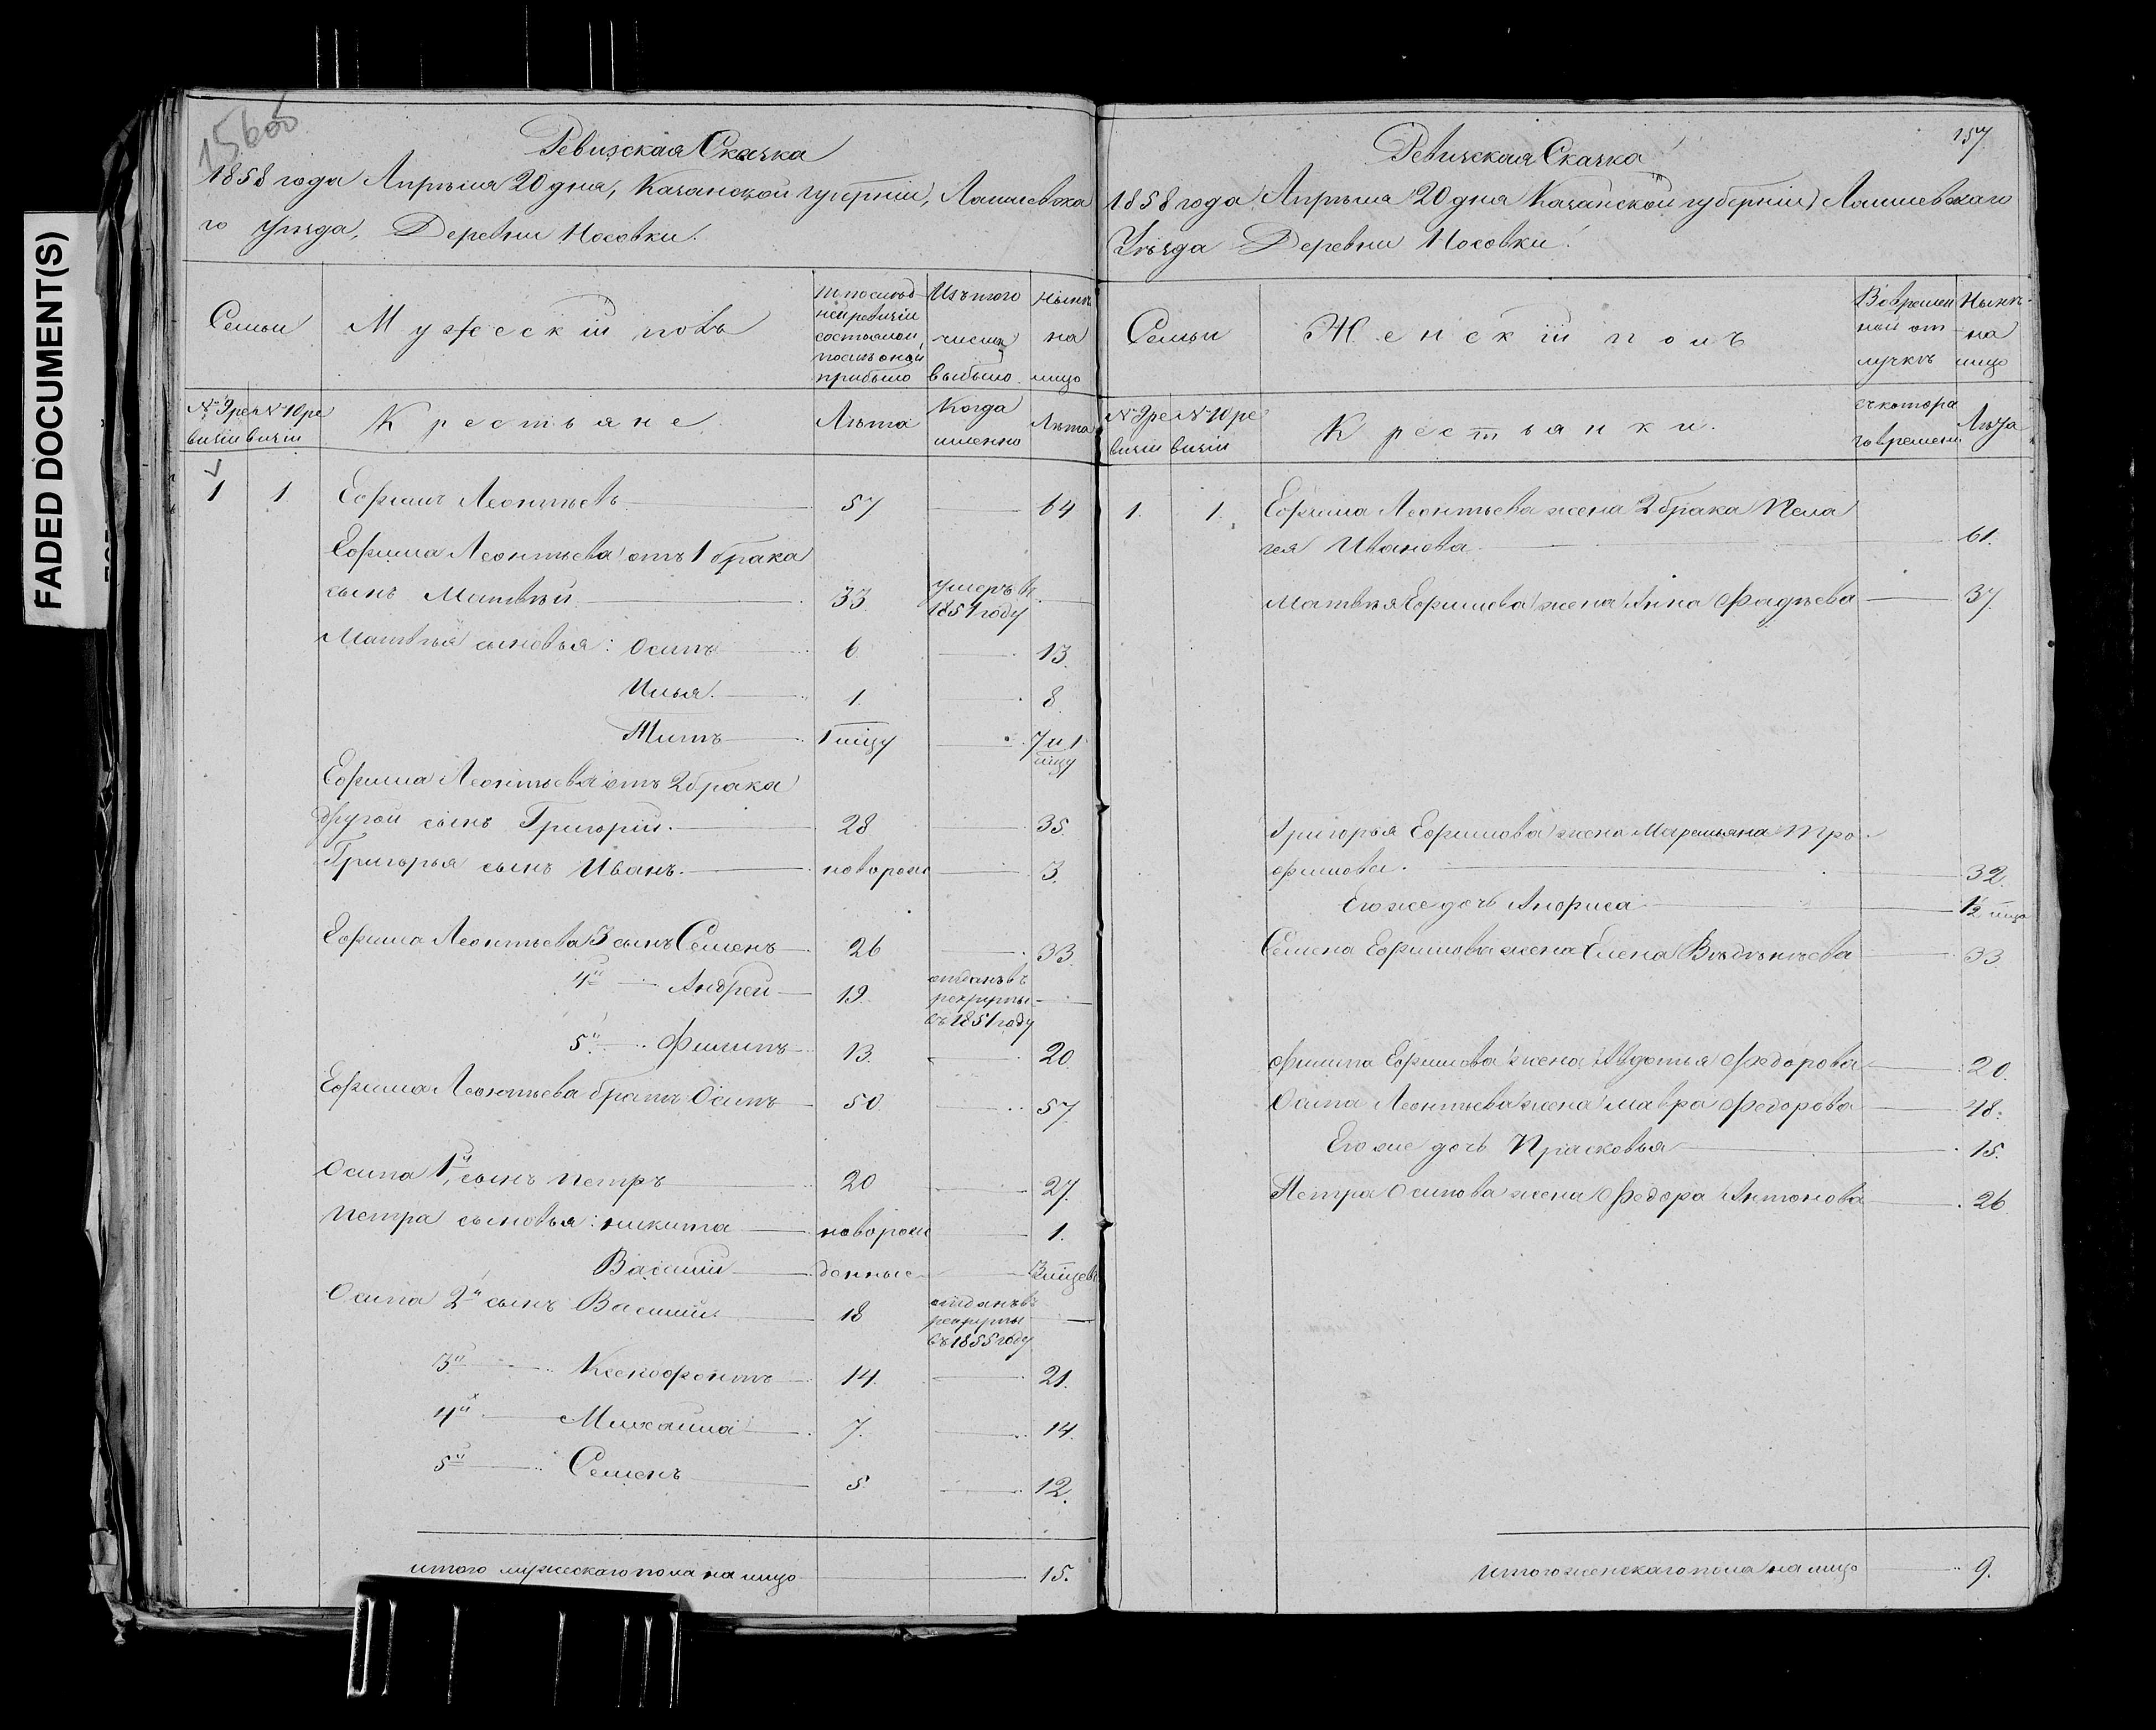 FADED DOCUMENT(S)
156об
Ревизская Сказка
1858 года Апрѣля 20 дня, Казанской губерніи, Лаишевска
го Уѣзда, Деревни Носовки.
Семьи
Мужескій полъ
По послѣд
ней ревизіи
состояло и
послѣ оной
прибыло
Изъ того
числа
выбыло
Нынѣ
на
лицо
№ 9 ре
визіи
№ 10 ре
визіи
Крестьяне
Лѣта
Когда
именно
Лѣта
1 1 Ефимъ Леонтьевъ 57 64
Ефима Леонтьева отъ 1 брака
сынъ Матвѣй 33 умеръ въ
1851 году
Матвѣя сыновья: Осипъ 6 13.
Илья. 1. 8
Титъ 1 мцу 7 и 1
мцу
Ефима Леонтьева отъ 2 брака
другой сынъ Григорій. 28 35.
Григорья сынъ Иванъ. новорож 3.
Ефима Леонтьева 3 сынъ Семенъ 26 33.
4й Андрей 19. отданъ въ
рекруты
въ 1851 году
5й Филипъ 13. 20
Ефима Леонтьева братъ Осипъ 50 57.
Осипа 1й сынъ Петръ 20 27.
Петра сыновья: Никита новорож 1.
Василій денные 3 мцевъ
Осипа 2й сынъ Василій 18 отданъ въ
рекруты
въ 1855 году
3й Ксенофонтъ 14. 21.
4й Михайла 7. 14.
5й Семенъ 5 12.
итого мужескаго пола на лицо 15.
157
Ревизская Сказка
1858 года Апрѣля 20 дня Казанской губерніи, Лаишевскаго
Уѣзда Деревни Носовки.
Семьи
Женскій полъ
Во времен
ной от
лучкѣ
Нынѣ
на
лицо
№ 9 ре
визіи
№ 10 ре
визіи
Крестьянки.
съ котора
го времени
Лѣта
1. 1. Ефима Леонтьева жена 2 брака Пела
гея Иванова 61.
Матвѣя Ефимова жена Анна Фадѣева 37.
Григорья Ефимова жена Маремьяна Тро
фимова. 32.
Его же дочь Анфиса 1/2 мца
Семена Ефимова жена Елена 33
Филипа Ефимова жена Авдотья Федорова 20.
Осипа Леонтьева жена Мавра Федорова 48.
Его же дочь Прасковья 15.
Петра Осипова жена Федора Антонова 26
Итого женскаго пола на лицо 9.